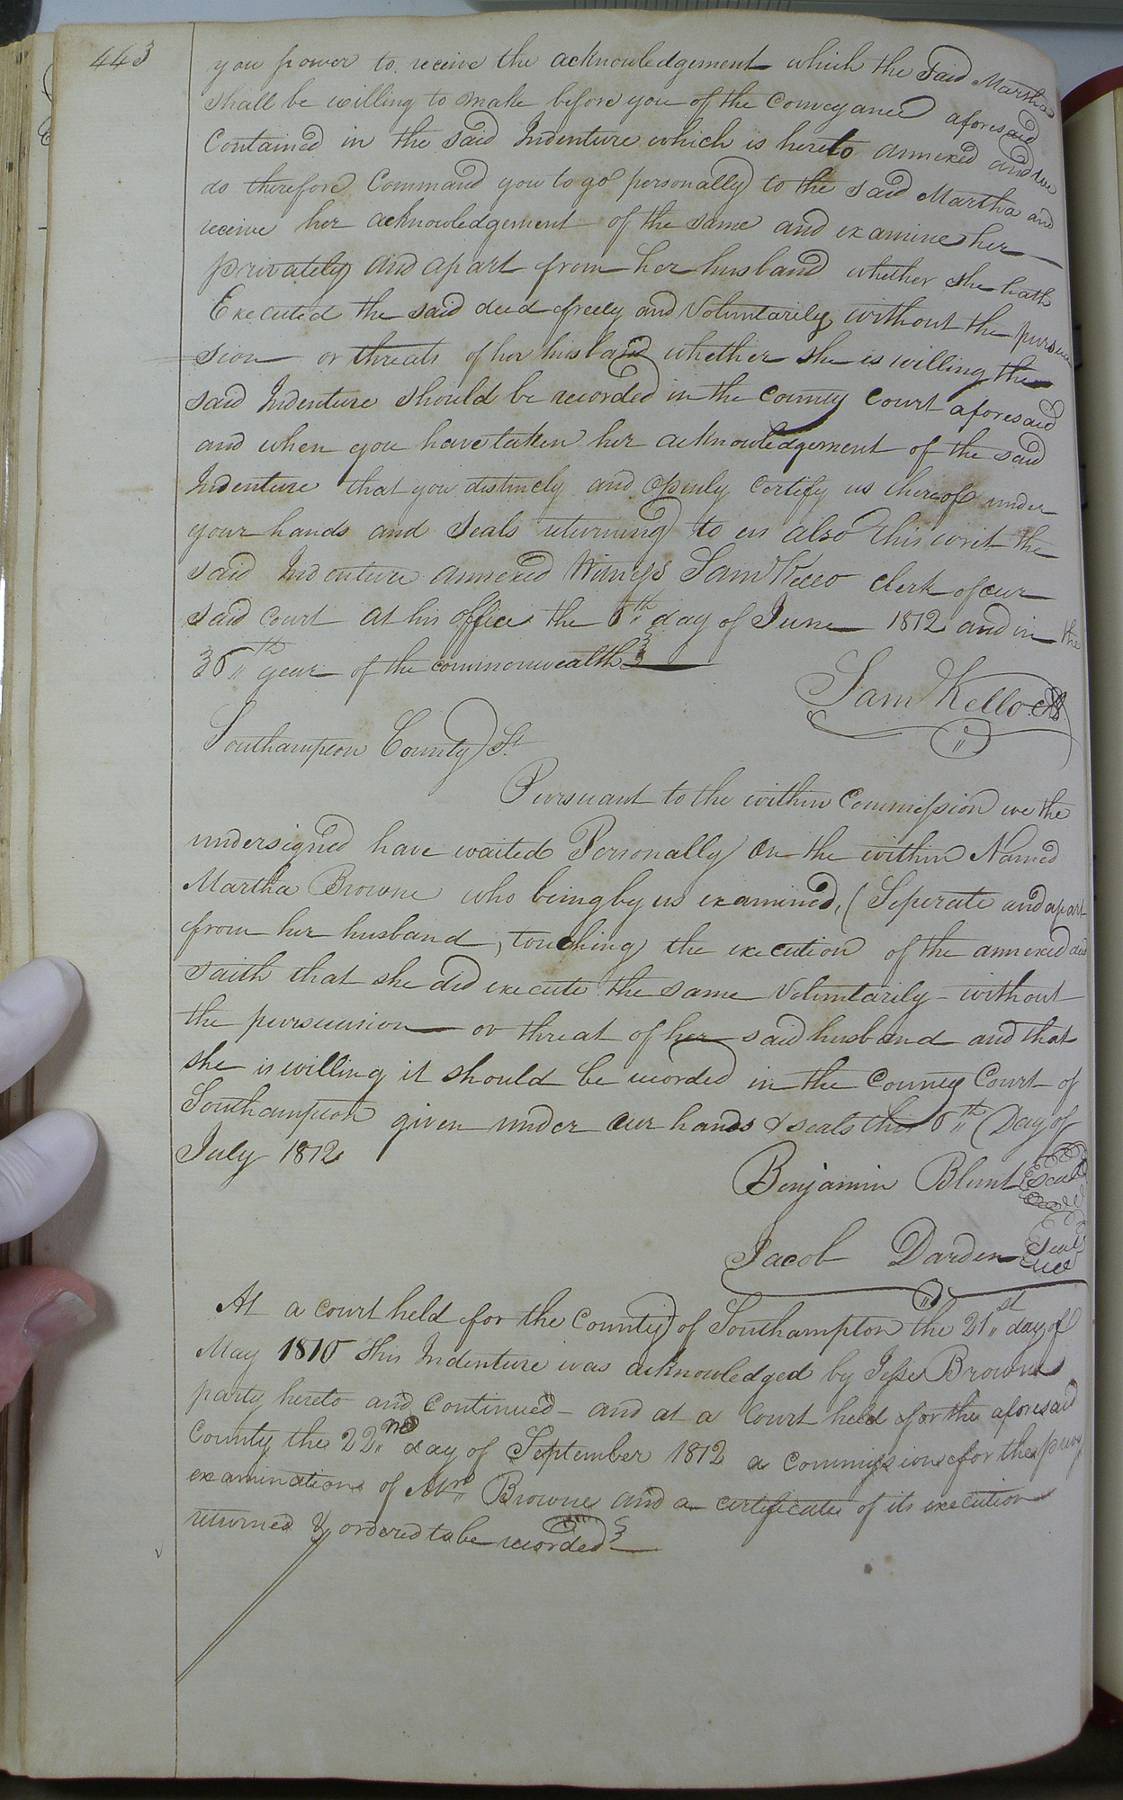 443
you power to receive the acknowledgement which the said Martha
shall be willing to make before you of the Conveyance aforesaid
Contained in the said Indenture which is hereto annexed and we
do therefore Command you to go personally to the said Martha and
receive her acknowledgement of the same and examine her
privately and apart from her husband whether she hath
Executed the said deed freely and Voluntarily without the persua
sion or threats of her husband whether she is willing the
said Indenture should be recorded in the County Court aforesaid
and when you have taken her acknowledgement of the said
Indenture that you distinctly and Openly Certify us thereof under
your hands and Seals returning to us also this writ the
said Indenture annexed Witness Saml Kello clerk of our
said Court at his office the 6th day of June 1812 and in the
36th year of the commonwealth
Sam Kello Clk
Southampton County St
Pursuant to the within Commission we the
undersigned have waited Personally On the within Named
Martha Browne who being by us examined, (Seperate and apart
from her husband, touching the execution of the annexed deed
saith that she did execute the same Voluntarily without
the persuasion or threat of her said husband and that
she is willing it should be recorded in the County Court of
Southampton given under our hands & seals this 6th Day of
July 1812
Benjamin Blunt Seal
Jacob Darden Seal
At a court held for the County of Southampton the 21st day of
May 1810 This Indenture was acknowledged by Jesse Browne
party hereto and Continued and at a Court held for the aforesaid
County the 22nd day of September 1812 a Commission for the privy
examination of Mrs Browne and a certificate of its execution
returned & ordered to be recorded